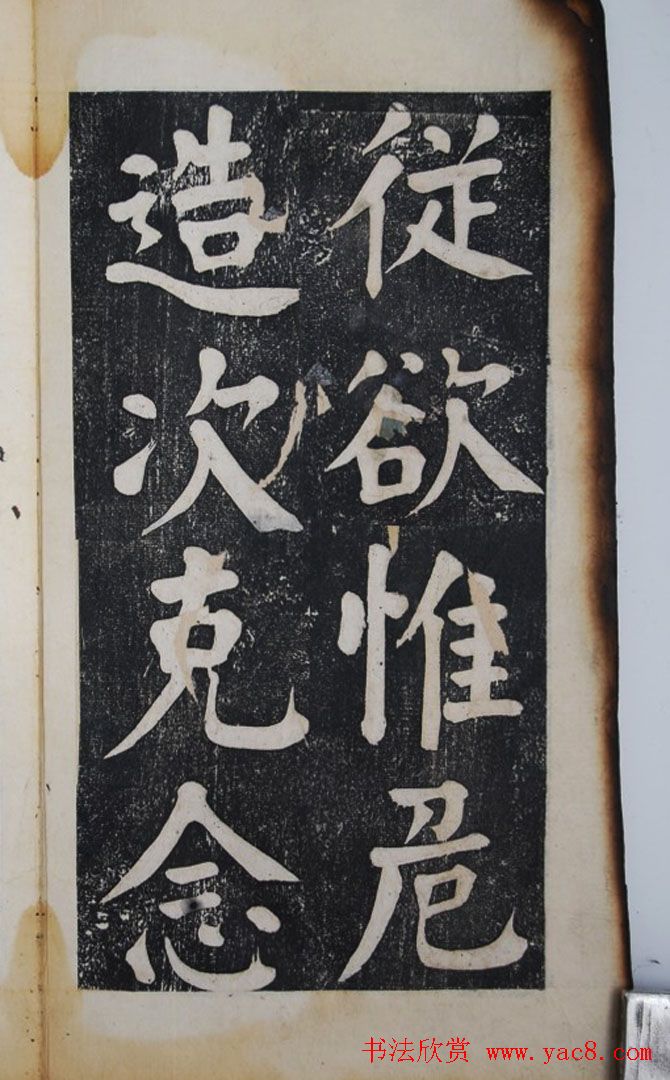 従欲惟危
造次克念
书法欣赏 www.yac8.com